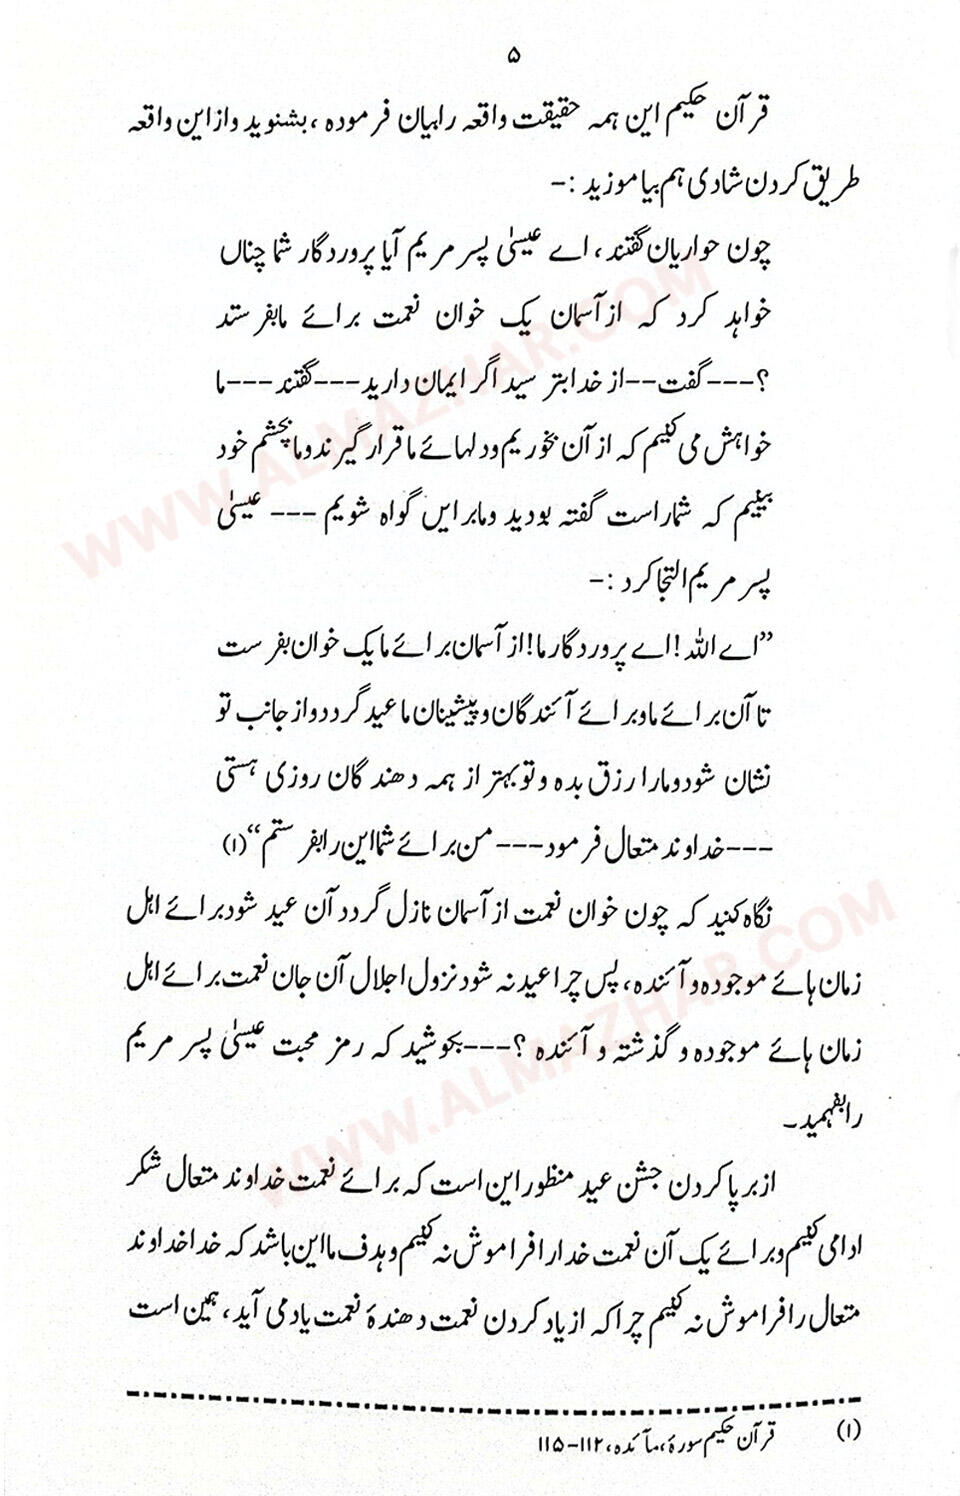 ۵
قرآن حکیم این همه حقیقت واقعه را بیان فرموده، بشنوید و از این واقعه
طریق کردن شادی هم بیاموزید :-
چون حواریان گفتند، اے عیسیٰ پسر مریم آیا پروردگار شما چناں
خواہد کرد کہ از آسمان یک خوان نعمت برائے ما بفرستد
؟---گفت--از خدا بترسید اگر ایمان دارید---گفتند---ما
خواہش می کنیم کہ از آن بخوریم و دلہائے ما قرار گیرند و ما بچشم خود
بینیم کہ شما راست گفتہ بودید و ما بر ایں گواہ شویم --- عیسیٰ
پسر مریم التجا کرد :-
”اے اللہ! اے پروردگار ما! از آسمان برائے ما یک خوان بفرست
تا آن برائے ما و برائے آئندگان و پیشینان ما عید گردد و از جانب تو
نشان شود و ما را رزق بدہ و تو بہتر از ہمہ دھندگان روزی ہستی
---خداوند متعال فرمود---من برائے شما این را بفرستم“(۱)
نگاہ کنید کہ چون خوان نعمت از آسمان نازل گردد آن عید شود برائے اہل
زمان ہائے موجودہ و آئندہ، پس چرا عید نہ شود نزول اجلال آن جان نعمت برائے اہل
زمان ہائے موجودہ و گذشتہ و آئندہ ؟---بکوشید کہ رمز محبت عیسیٰ پسر مریم
را بفہمید۔
از برپا کردن جشن عید منظور این است کہ برائے نعمت خداوند متعال شکر
ادا می کنیم و برائے یک آن نعمت خدا را فراموش نہ کنیم و ہدف ما این باشد کہ خدا خداوند
متعال را فراموش نہ کنیم چرا کہ از یاد کردن نعمت دھندۂ نعمت یاد می آید، ہمین است
(۱) قرآن حکیم سورۂ، مآئدہ، ۱۱۲-۱۱۵
WWW.ALMAZHAR.COM
WWW.ALMAZHAR.COM